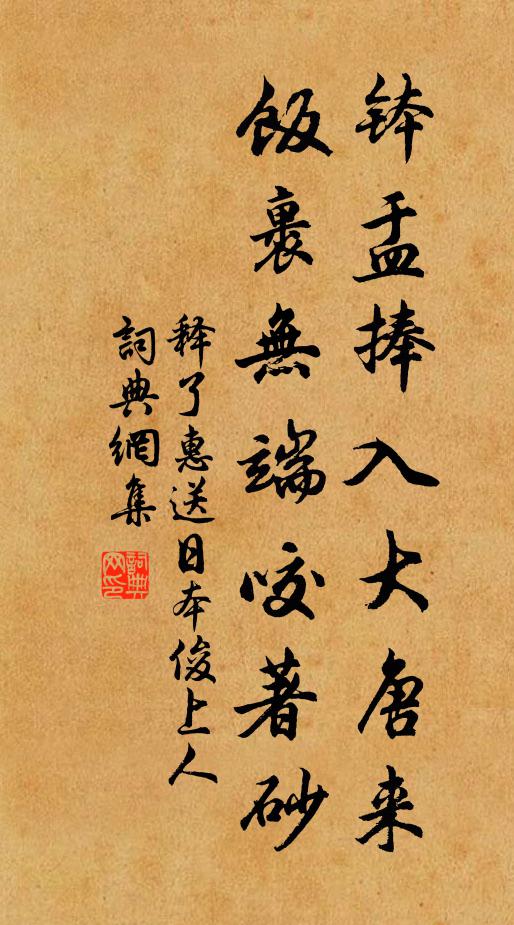 钵盂捧入大唐来
飯裏無端咬著砂
释了惠送日本俊上人
詞典網集
詞典网印